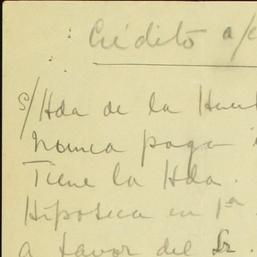 Crédito a/c
s/Hda de la Huer
nunca paga
Tiene la Hda.
Hipoteca en 1ª
a favor del Sr.